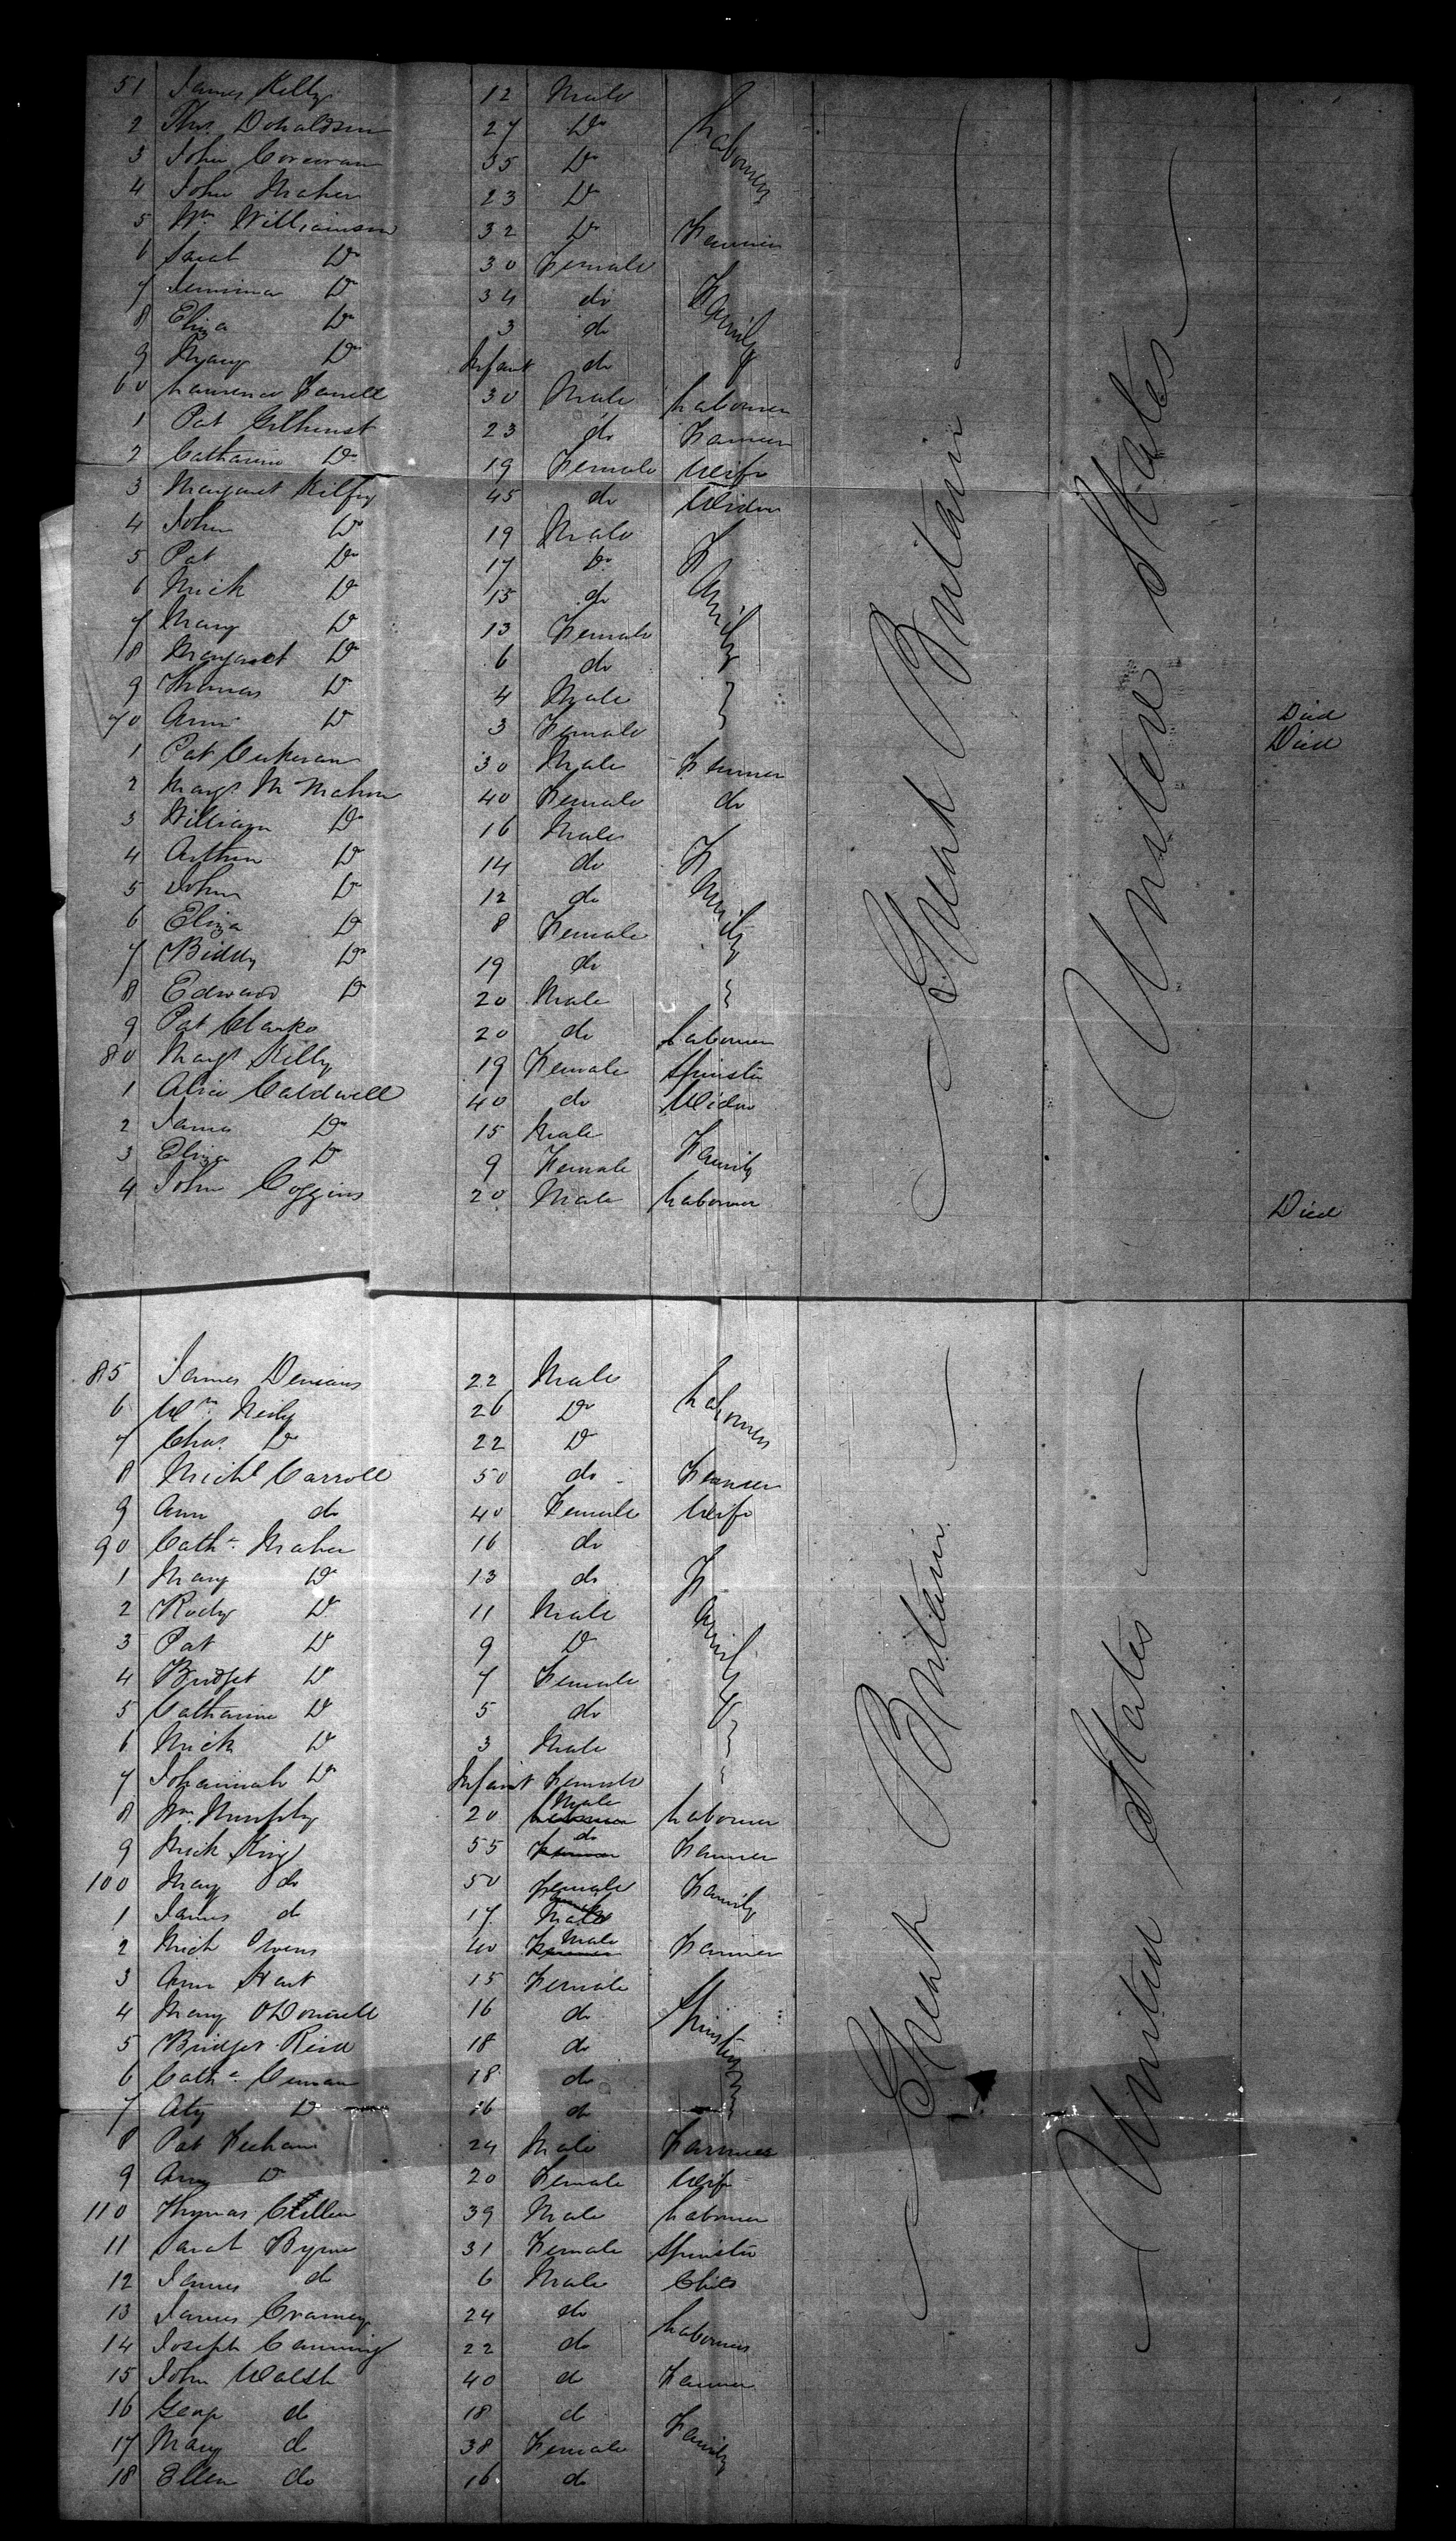 51 James Kelly 12 Male
2 Thos. Donaldson 27 Do Labourers
3 John Corcoran 35 Do
4 John Maher 23 Do
5 Wm Williamson 32 Do Farmer
6 Sarah Do 30 Female
7 Jemima Do 34 do Family
8 Eliza Do 3 do
9 Mary Do Infant do
60 Laurence Farrell 30 Male Labourer
1 Pat Gilhurst 23 do Farmer
2 Catharine Do 19 Female Wife
3 Margaret Kilfoy 45 do Widow
4 John Do 19 Male
5 Pat Do 17 Do Family
6 Mick Do 15 do
7 Mary Do 13 Female
8 Margaret Do 6 do
9 Thomas Do 4 Male Died
70 Ann Do 3 Female Died
1 Pat 30 Male Farmer
2 Margt McMahon 40 Female do
3 William Do 16 Male
4 Arthur Do 14 do Family
5 John Do 12 do
6 Eliza Do 8 Female
7 Biddy Do 19 do
8 Edward Do 20 Male
9 Pat Clarke 20 do Labourer
80 Margt Kelly 19 Female Spinster
1 Alice Caldwell 40 do Widow
2 James Do 15 Male Family
3 Eliza Do 9 Female
4 John Coggins 20 Male Labourer Died
Great Britain
United States
85 James 22 Male Labourers
6 Wm Neily 26 Do
7 Chas. Do 22 Do
8 Michl Carroll 50 do Farmer
9 Ann do 40 Female Wife
90 Cathe Maher 16 do
1 Mary Do 13 do Family
2 Rody Do 11 Male
3 Pat Do 9 Do
4 Bridget Do 7 Female
5 Catharine Do 5 do
6 Mick Do 3 Male
7 Johannah Do Infant Female
8 Wm. Murphy 20 Male Labourer
9 Mick King 55 do Farmer
100 Mary do 50 Female Family
1 James do 17 Male
2 Mich Owens 40 Male Farmer
3 Ann Hart 15 Female
4 Mary O'Donnell 16 do Spinsters
5 Bridget Reid 18 do
6 Cathe 18 do
7 Do 16 do
8 Pat Feehan 24 Male Farmer
9 Do 20 Female Wife
110 Thomas 39 Male Labourer
11 Sarah Byrne 31 Female Spinster
12 James do 6 Male Child
13 James 24 do Labourers
14 Joseph Canning 22 do
15 John Walsh 40 do Farmer
16 Geor do 18 do Family
17 Mary do 38 Female
18 Ellen do 16 do
Great Britain
United States